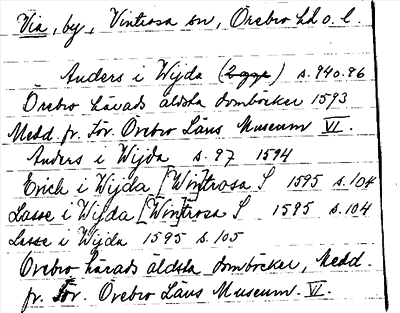 Via, by, Vintrosa sn, Örebro hd o. l.
Anders i Wijda s. 940.86
Örebro härads äldsta domböcker 1593
Medd. fr. För. Örebro Läns Museum VI.
Anders i Wijda s. 97 1594
Erich i Wijda [Win]trosa S 1595 s. 104
Lasse i Wijda [Win]trosa S 1595 s. 104
Lasse i Wijda 1595 s. 105
Örebro härads äldsta domböcker, Medd.
fr. För. Örebro Läns Museum. VI.